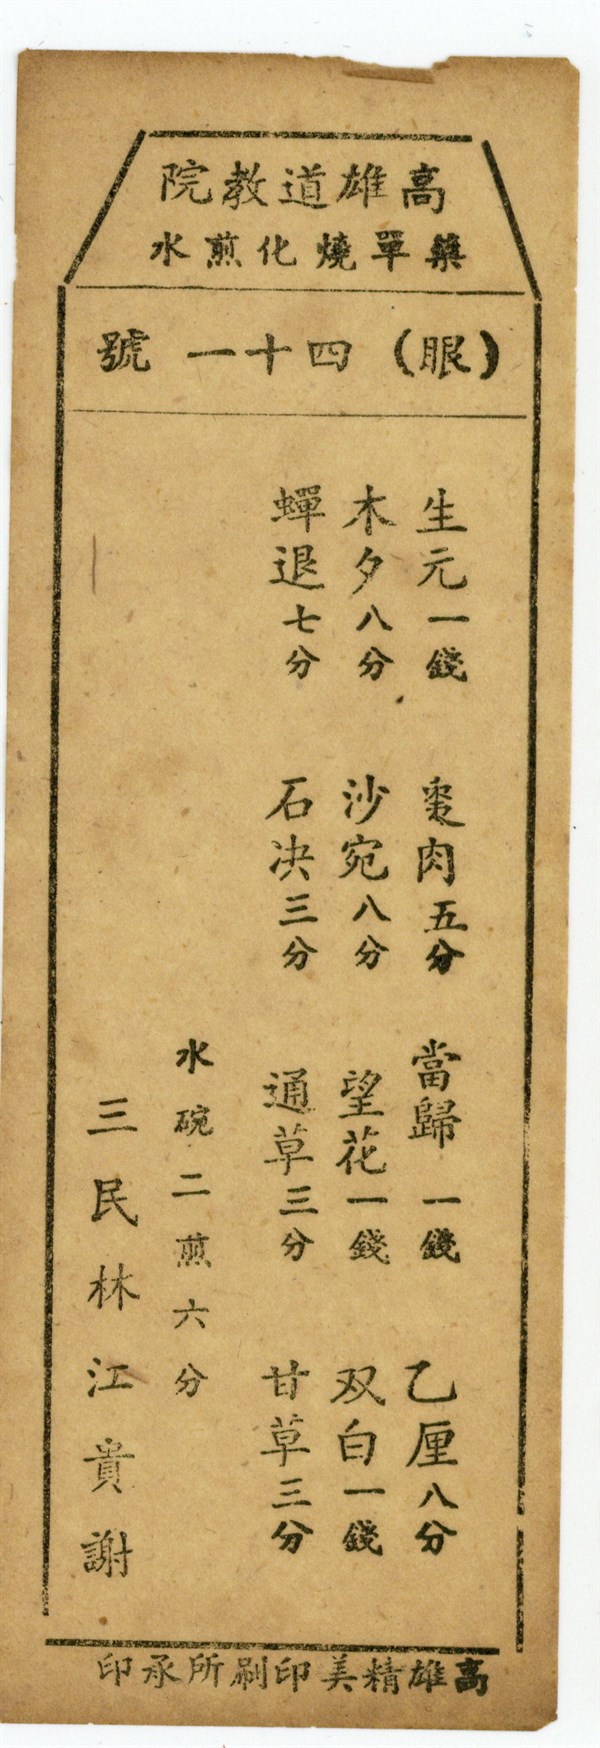 高雄道教院
藥單燒化煎水
(眼)四十一號
生元一錢 棗肉五分 當歸一錢 乙厘八分
木夕八分 沙宛八分 望花一錢 双白一錢
蟬退七分 石决三分 通草三分 甘草三分
水碗二煎六分
三民林江貴謝
高雄精美印刷所承印